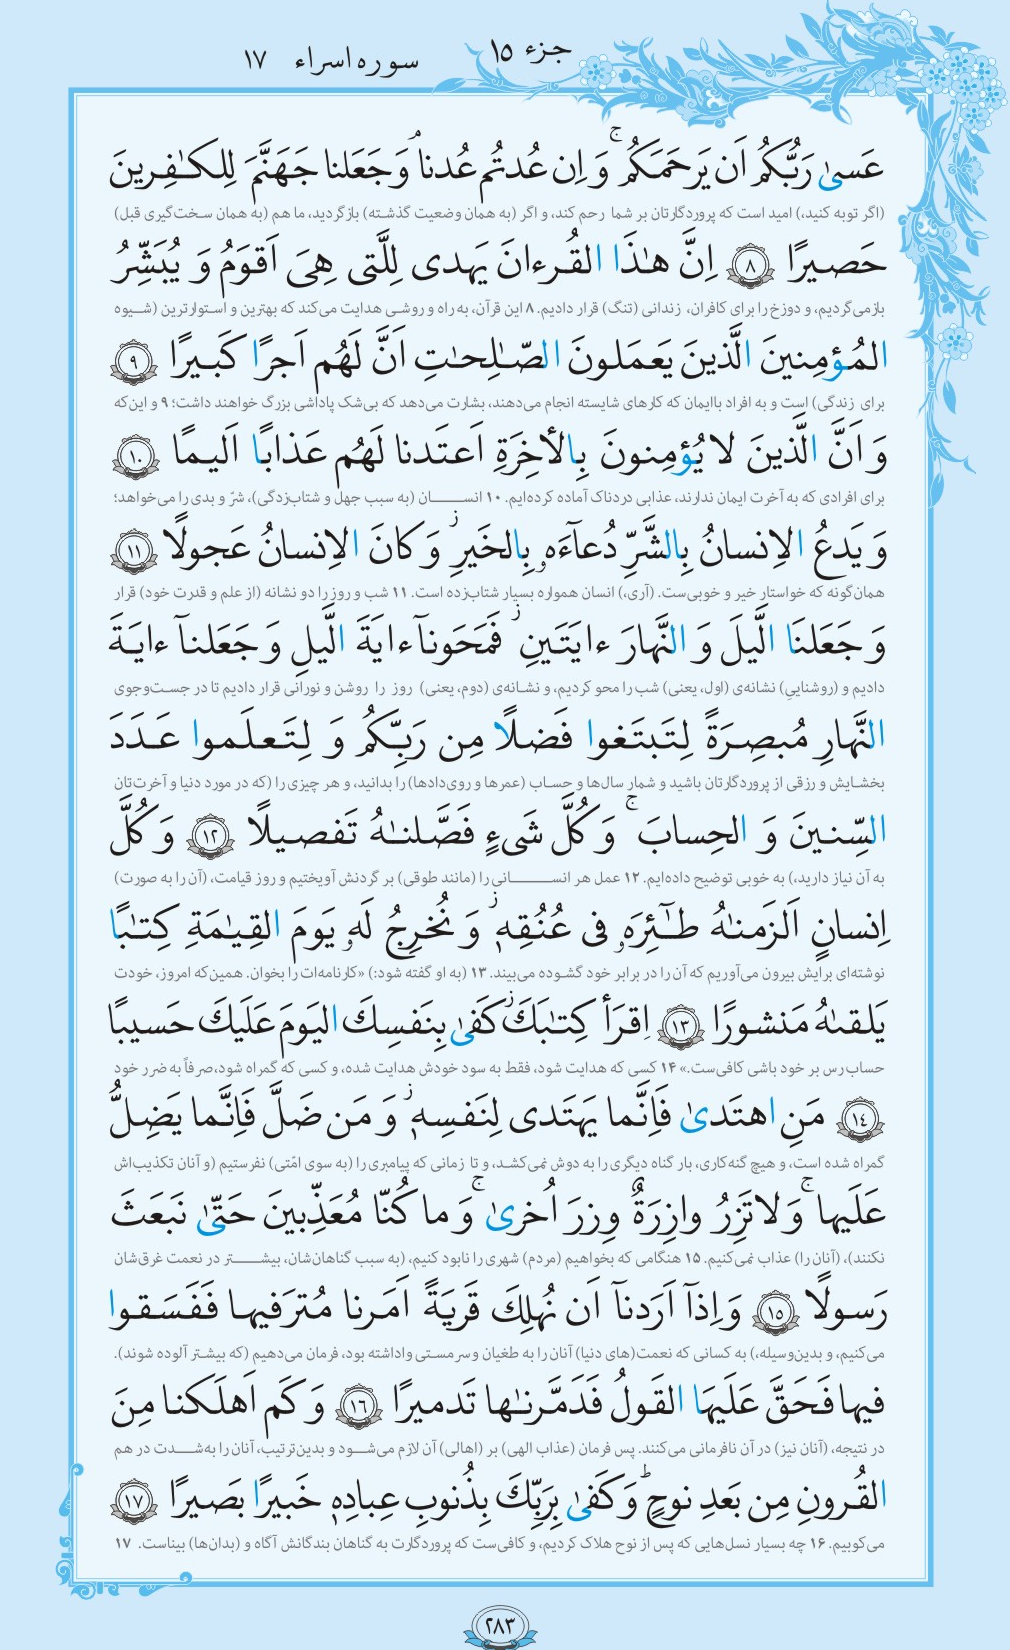 جزء ۱۵
سوره اسراء ۱۷
عَسیٰ رَبُّکُم اَن یَرحَمَکُم ۚ وَ اِن عُدتُم عُدنا ۘ وَ جَعَلنا جَهَنَّمَ لِلکـٰفِرینَ
(اگر توبه کنید،) امید است که پروردگارتان بر شما رحم کند، و اگر (به همان وضعیت گذشـته) بازگردید، ما هم (به همان سـخت‌گیری قبل)
حَصیرًا ﴿۸﴾ اِنَّ هـٰذَا القُرءانَ یَهدی لِلَّتی هِیَ اَقوَمُ وَ یُبَشِّرُ
بازمی‌گردیم، و دوزخ را برای کافران، زندانی (تنگ) قرار دادیم. ۸ این قرآن، به راه و روشـی هدایت می‌کند که بهترین و اسـتوارترین (شـیوه
المُؤمِنینَ الَّذینَ یَعمَلونَ الصّـٰلِحـٰتِ اَنَّ لَهُم اَجرًا کَبیرًا ﴿۹﴾
برای زندگی) است و به افراد باایمان که کارهای شایسته انجام می‌دهند، بشارت می‌دهد که بی‌شک پاداشی بزرگ خواهند داشت؛ ۹ و این‌که
وَ اَنَّ الَّذینَ لا یُؤمِنونَ بِالأخِرَةِ اَعتَدنا لَهُم عَذابًا اَلیمًا ﴿۱۰﴾
برای افرادی که به آخرت ایمان ندارند، عذابی دردناک آماده کرده‌ایم. ۱۰ انســـان (به سبب جهل و شتاب‌زدگی)، شرّ و بدی را می‌خواهد؛
وَ یَدعُ الاِنسانُ بِالشَّرِّ دُعآءَهٗ بِالخَیرِ ۖ وَ کانَ الاِنسانُ عَجولًا ﴿۱۱﴾
همان‌گونه که خواستار خیر و خوبی‌ست. (آری،) انسان همواره بسیار شتاب‌زده است. ۱۱ شب و روز را دو نشانه (از علم و قدرت خود) قرار
وَ جَعَلنَا الَّیلَ وَ النَّهارَ ءایَتَینِ ۖ فَمَحَونآ ءایَةَ الَّیلِ وَ جَعَلنآ ءایَةَ
دادیم و (روشنایی) نشانه‌ی (اول، یعنی) شب را محو کردیم، و نشـانه‌ی (دوم، یعنی) روز را روشن و نورانی قرار دادیم تا در جست‌وجوی
النَّهارِ مُبصِرَةً لِتَبتَغوا فَضلًا مِن رَبِّکُم وَ لِتَعلَموا عَدَدَ
بخشایش و رزقی از پروردگارتان باشید و شمار سال‌ها و حساب (عمرها و روی‌دادها) را بدانید، و هر چیزی را (که در مورد دنیا و آخرت‌تان
السِّنینَ وَ الحِسابَ ۚ وَ کُلَّ شَیءٍ فَصَّلنـٰهُ تَفصیلًا ﴿۱۲﴾ وَ کُلَّ
به آن نیاز دارید،) به خوبی توضیح داده‌ایم. ۱۲ عمل هر انســـانی را (مانند طوقی) بر گردنش آویختیم و روز قیامت، (آن را به صورت)
اِنسانٍ اَلزَمنـٰهُ طـٰٓئِرَهٗ فی عُنُقِهٖ ۖ وَ نُخرِجُ لَهٗ یَومَ القِیـٰمَةِ کِتـٰبًا
نوشته‌ای برایش بیرون می‌آوریم که آن را در برابر خود گشوده می‌بیند. ۱۳ (به او گفته شود:) «کارنامه‌ات را بخوان. همین‌که امروز، خودت
یَلقىٰهُ مَنشورًا ﴿۱۳﴾ اِقرَأ کِتـٰبَکَ ۖ کَفیٰ بِنَفسِکَ الیَومَ عَلَیکَ حَسیبًا
حساب‌رس بر خود باشی کافی‌ست.» ۱۴ کسی که هدایت شود، فقط به سود خودش هدایت شده، و کسی که گمراه شود، صرفاً به ضرر خود
﴿۱۴﴾ مَنِ اهتَدیٰ فَاِنَّما یَهتَدی لِنَفسِهٖ ۖ وَ مَن ضَلَّ فَاِنَّما یَضِلُّ
گمراه شده است، و هیچ گنه‌کاری، بار گناه دیگری را به دوش نمی‌کشـد، و تا زمانی که پیامبری را (به سوی امّتی) نفرستیم (و آنان تکذیب‌اش
عَلَیها ۚ وَ لا تَزِرُ وازِرَةٌ وِزرَ اُخریٰ ۚ وَ ما کُنّا مُعَذِّبینَ حَتّیٰ نَبعَثَ
نکنند)، (آنان را) عذاب نمی‌کنیم. ۱۵ هنگامی که بخواهیم (مردم) شهری را نابود کنیم، (به سبب گناهان‌شان، بیشـــتر در نعمت غرق‌شان
رَسولًا ﴿۱۵﴾ وَ اِذآ اَرَدنآ اَن نُهلِکَ قَریَةً اَمَرنا مُترَفیها فَفَسَقوا
می‌کنیم، و بدین‌وسیله،) به کسانی که نعمت(های دنیا) آنان را به طغیان و سرمسـتی واداشته بود، فرمان می‌دهیم (که بیشـتر آلوده شوند).
فیها فَحَقَّ عَلَیهَا القَولُ فَدَمَّرنـٰها تَدمیرًا ﴿۱۶﴾ وَ کَم اَهلَکنا مِنَ
در نتیجه، (آنان نیز) در آن نافرمانی می‌کنند. پس فرمان (عذاب الهی) بر (اهالی) آن لازم می‌شـــود و بدین‌ترتیب، آنان را به‌شـــدت در هم
القُرونِ مِن بَعدِ نوحٍ ۗ وَ کَفیٰ بِرَبِّکَ بِذُنوبِ عِبادِهٖ خَبیرًا بَصیرًا ﴿۱۷﴾
می‌کوبیم. ۱۶ چه بسیار نسل‌هایی که پس از نوح هلاک کردیم، و کافی‌ست که پروردگارت به گناهان بندگانش آگاه و (بدان‌ها) بیناست. ۱۷
۲۸۳